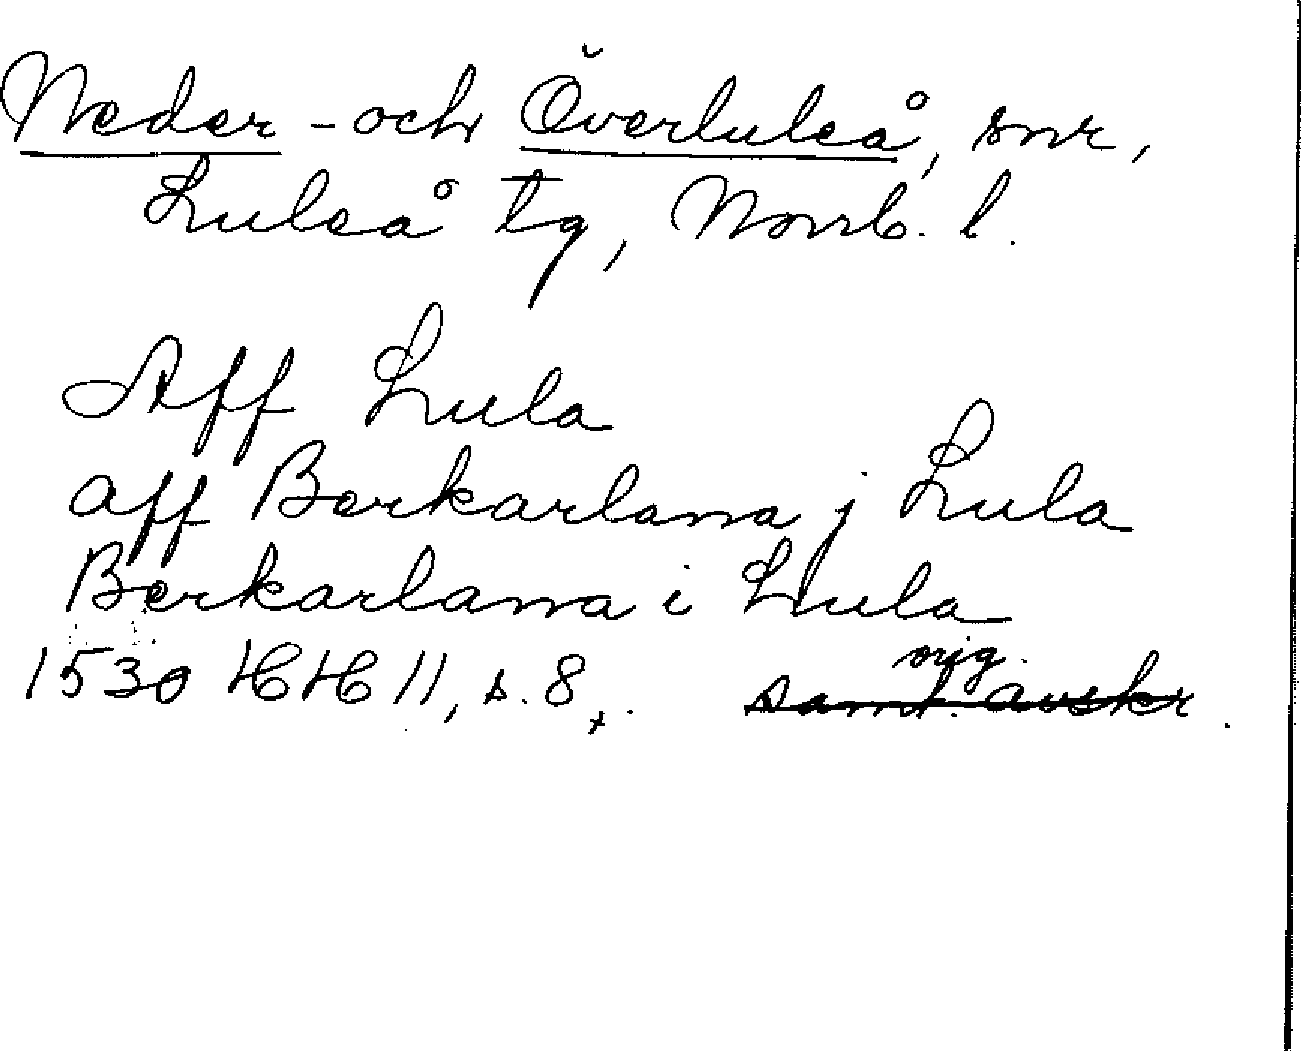 Neder- och Överluleå, snr,
Luleå tg, Norrb. l.
Aff Lula
aff Berkarlana j Lula
Berkarlana i Lula
orig.
1530 HH 11, s. 8, samt. avskr.